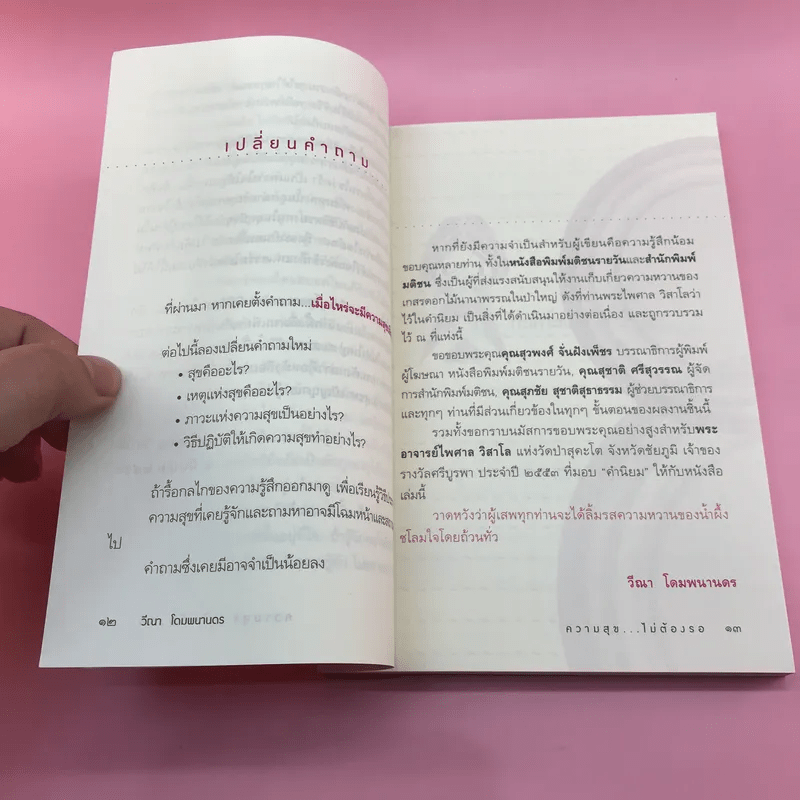 เปลี่ยนคำถาม
ที่ผ่านมา หากเคยตั้งคำถาม...เมื่อไหร่จะมีความสุข
ต่อไปนี้ลองเปลี่ยนคำถามใหม่
• สุขคืออะไร?
• เหตุแห่งสุขคืออะไร?
• ภาวะแห่งความสุขเป็นอย่างไร?
• วิธีปฏิบัติให้เกิดความสุขทำอย่างไร?
ถ้ารื้อกลไกของความรู้สึกออกมาดู เพื่อเรียนรู้
ความสุขที่เคยรู้จักและถามหาอาจมีโฉมหน้าและ
ไป
คำถามซึ่งเคยมีอาจจำเป็นน้อยลง
๑๒ วีณา โดมพนานดร
หากที่ยังมีความจำเป็นสำหรับผู้เขียนคือความรู้สึกน้อม
ขอบคุณหลายท่าน ทั้งในหนังสือพิมพ์มติชนรายวันและสำนักพิมพ์
มติชน ซึ่งเป็นผู้ที่ส่งแรงสนับสนุนให้งานเก็บเกี่ยวความหวานของ
เกสรดอกไม้นานาพรรณในป่าใหญ่ ดังที่ท่านพระไพศาล วิสาโลว่า
ไว้ในคำนิยม เป็นสิ่งที่ได้ดำเนินมาอย่างต่อเนื่อง และถูกรวบรวม
ไว้ ณ ที่แห่งนี้
ขอขอบพระคุณคุณสุวพงศ์ จั่นฝังเพ็ชร บรรณาธิการผู้พิมพ์
ผู้โฆษณา หนังสือพิมพ์มติชนรายวัน, คุณสุชาติ ศรีสุวรรณ ผู้จัด
การสำนักพิมพ์มติชน, คุณสุภชัย สุชาติสุธาธรรม ผู้ช่วยบรรณาธิการ
และทุกๆ ท่านที่มีส่วนเกี่ยวข้องในทุกๆ ขั้นตอนของผลงานชิ้นนี้
รวมทั้งขอกราบนมัสการขอบพระคุณอย่างสูงสำหรับพระ
อาจารย์ไพศาล วิสาโล แห่งวัดป่าสุคะโต จังหวัดชัยภูมิ เจ้าของ
รางวัลศรีบูรพา ประจำปี ๒๕๕๓ ที่มอบ “คำนิยม” ให้กับหนังสือ
เล่มนี้
วาดหวังว่าผู้เสพทุกท่านจะได้ลิ้มรสความหวานของน้ำผึ้ง
ชโลมใจโดยถ้วนทั่ว
วีณา โดมพนานดร
ความสุข...ไม่ต้องรอ ๑๓